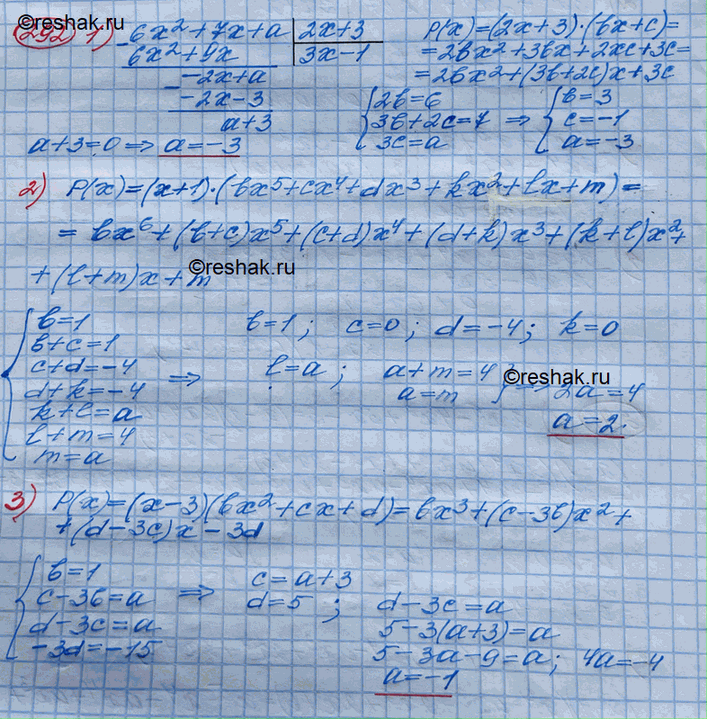 ©reshak.ru
292 1) 6x²+7x+a | 2x+3
6x²+9x 3x-1
-2x+a
-2x-3
a+3
a+3=0 ⇒ a=-3
P(x)=(2x+3)·(bx+c)=
=2bx²+3bx+2xc+3c=
=2bx²+(3b+2c)x+3c
{2b=6 ⇒ {b=3
3b+2c=7 c=-1
3c=a a=-3
2) P(x)=(x+1)·(bx⁵+cx⁴+dx³+kx²+lx+m)=
=bx⁶+(b+c)x⁵+(c+d)x⁴+(d+k)x³+(k+l)x²+
+(l+m)x+m
©reshak.ru
{b=1
b+c=1
c+d=-4
d+k=-4 ⇒
k+l=a
l+m=4
m=a
b=1; c=0; d=-4; k=0
l=a; a+m=4
a=m } ⇒ 2a=4
©reshak.ru
a=2.
3) P(x)=(x-3)(bx²+cx+d)=bx³+(c-3b)x²+
+(d-3c)x-3d
{b=1
c-3b=a ⇒
d-3c=a
-3d=-15
c=a+3
d=5; d-3c=a
5-3(a+3)=a
5-3a-9=a; 4a=-4
a=-1